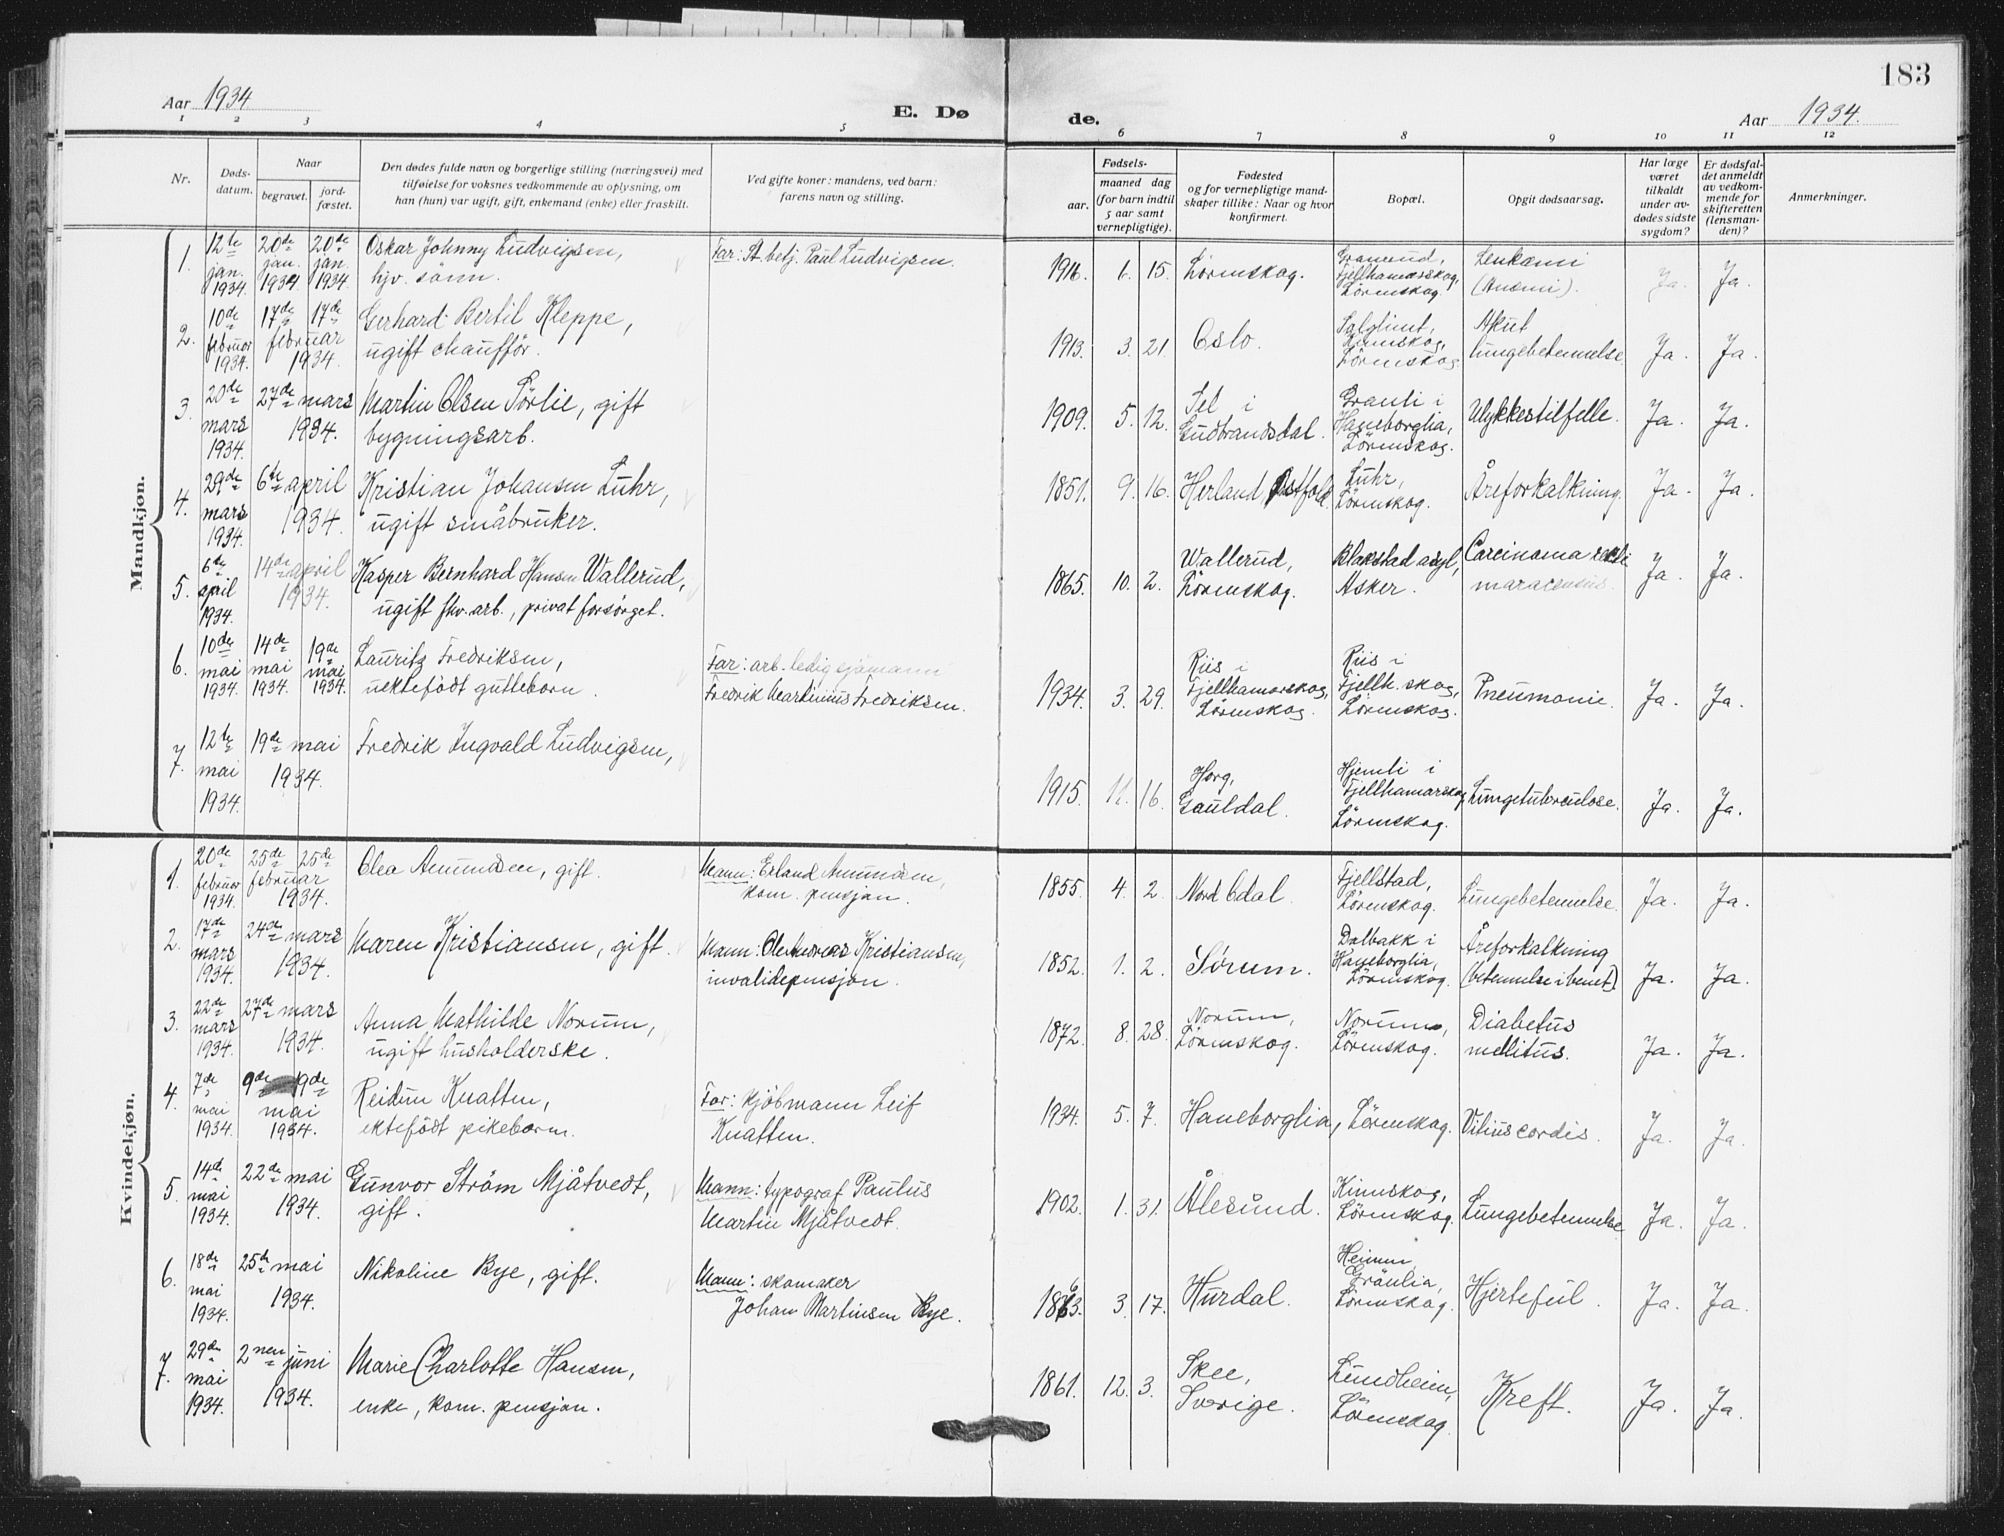 183
Aar 1934
E. Dø
de.
Aar 1934.
1 2 3 4 5
6 7 8 9 10 11 12
Nr.
Døds-
datum.
Naar
begravet.
jord-
fæstet.
Den dødes fulde navn og borgerlige stilling (næringsvei) med
tilføielse for voksnes vedkommende av oplysning, om
han (hun) var ugift, gift, enkemand (enke) eller fraskilt.
Ved gifte koner: mandens, ved barn:
farens navn og stilling.
Fødsels-
aar.
maaned dag
(for barn indtil
5 aar samt
vernepligtige).
Fødested
og for vernepligtige mand-
skaper tillike: Naar og hvor
konfirmert.
Bopæl.
Opgit dødsaarsag.
Har læge
været
tilkaldt
under av-
dødes sidste
sygdom?
Er dødsfal-
det anmeldt
av vedkom-
mende for
skifteretten
(lensman-
den)?
Anmerkninger.
Mandkjøn.
1.
12te
jan.
1934.
20de
jan.
1934
20de
jan.
1934.
Oskar Johnny Ludvigsen,
hjv. sønn.
Far: St. betj. Paul Ludvigsen.
1916. 6. 15.
Lørenskog.
Granerud,
Fjellhamarskog,
Lørenskog.
Leukemi
(Anemi).
Ja. Ja.
2.
10de
februar
1934.
17de 17de
februar
1934.
Gerhard Bertil Kleppe,
ugift chaufför.
1913. 3. 21.
Oslo.
Solglimt,
Kinnskog,
Lørenskog.
Akut
lungebetennelse
Ja. Ja.
3.
20de
mars
1934.
27de mars
1934.
Martin Olsen Sörlie, gift
bygningsarb.
1909. 5. 12.
Sel i
Gudbrandsdal.
Granli i
Haneborglia,
Lørenskog.
Ulykkestilfelle.
Ja. Ja.
4.
29de
mars
1934.
6te april
1934.
Kristian Johansen Luhr,
ugift småbruker.
1851. 9. 16.
Herland Østfold.
Luhr,
Lørenskog.
Åreforkalkning.
Ja. Ja.
5.
6de
april
1934.
14de april
1934.
Kasper Bernhard Hansen Wallerud,
ugift fhv. arb., privat forsørget.
1865. 10. 2.
Wallerud,
Lørenskog.
Blakstad asyl,
Asker.
Carcinoma recti
Ja. Ja.
6.
10de
mai
1934.
14de
mai
1934.
19de
mai
1934.
Lauritz Fredriksen,
uektefödt guttebarn.
Far: arb. ledig sjømann
Fredrik Martinius Fredriksen.
1934. 3. 29.
Riis i
Fjellhamarskog,
Lørenskog.
Riis i
Fjellh. skog,
Lørenskog.
Pneumonie.
Ja. Ja.
7.
12te
mai
1934.
19de mai
1934.
Fredrik Ingvald Ludvigsen,
1915. 11. 16.
Horg,
Gauldal.
Hjemli i
Fjellhamarskog,
Lørenskog.
Lungetuberculose.
Ja. Ja.
Kvindekjøn.
1.
20de
februar
1934.
25de 25de
februar
1934.
Olea Amundsen, gift.
Mann: Erland Amundsen,
kom. pensjon.
1855. 4. 2.
Nord Odal.
Fjellstad,
Lørenskog.
Lungebetennelse.
Ja. Ja.
2.
17de
mars
1934.
24de mars
1934.
Maren Kristiansen, gift.
Mann: Ole Andreas Kristiansen,
invalidepensjon.
1852. 1. 2.
Sørum.
Dalbakk i
Haneborglia,
Lørenskog.
Åreforkalkning
(betennelse i benet).
Ja. Ja.
3.
22de
mars
1934.
27de mars
1934.
Anna Mathilde Norum,
ugift husholderske.
1872. 8. 28.
Norum,
Lørenskog.
Norum,
Lørenskog.
Diabetus
mellitus.
Ja. Ja.
4.
7de
mai
1934.
9de 19de
mai
1934.
Reidun Knatten,
ektefödt pikebarn.
Far: kjöbmann Leif
Knatten.
1934. 5. 7.
Haneborglia, Lørenskog.
Vitius cordis.
Ja. Ja.
5.
14de
mai
1934.
22de mai
1934.
Gunvor Ström Mjåtvedt,
gift.
Mann: typograf Paulus
Martin Mjåtvedt.
1902. 1. 31.
Ålesund.
Kinnskog,
Lørenskog.
Lungebetennelse
Ja. Ja.
6.
18de
mai
1934.
25de mai
1934.
Nikoline Bye, gift.
Mann: skomaker
Johan Martinsen Bye.
1863. 3. 17.
Hurdal.
Heimen,
Grånlia,
Lørenskog.
Hjertefeil.
Ja. Ja.
7.
29de
mai
1934.
2nen juni
1934.
Marie Charlotte Hansen,
enke, kom. pensjon.
1861. 12. 3.
Skee,
Sverige.
Lundheim,
Lørenskog.
Kreft.
Ja. Ja.